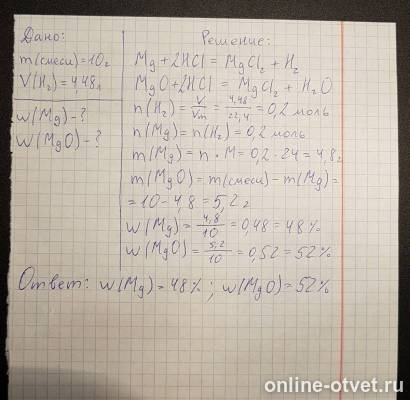 Дано:
m(смеси)=10г
V(H₂)=4,48л
w(Mg)-?
w(MgO)-?
Решение:
Mg+2HCl=MgCl₂+H₂
MgO+2HCl=MgCl₂+H₂O
n(H₂)=V/Vm=4,48/22,4=0,2 моль
n(Mg)=n(H₂)=0,2 моль
m(Mg)=n·M=0,2·24=4,8г
m(MgO)=m(смеси)-m(Mg)=
=10-4,8=5,2г
w(Mg)=4,8/10=0,48=48%
w(MgO)=5,2/10=0,52=52%
Ответ: w(Mg)=48%; w(MgO)=52%
online-otvet.ru